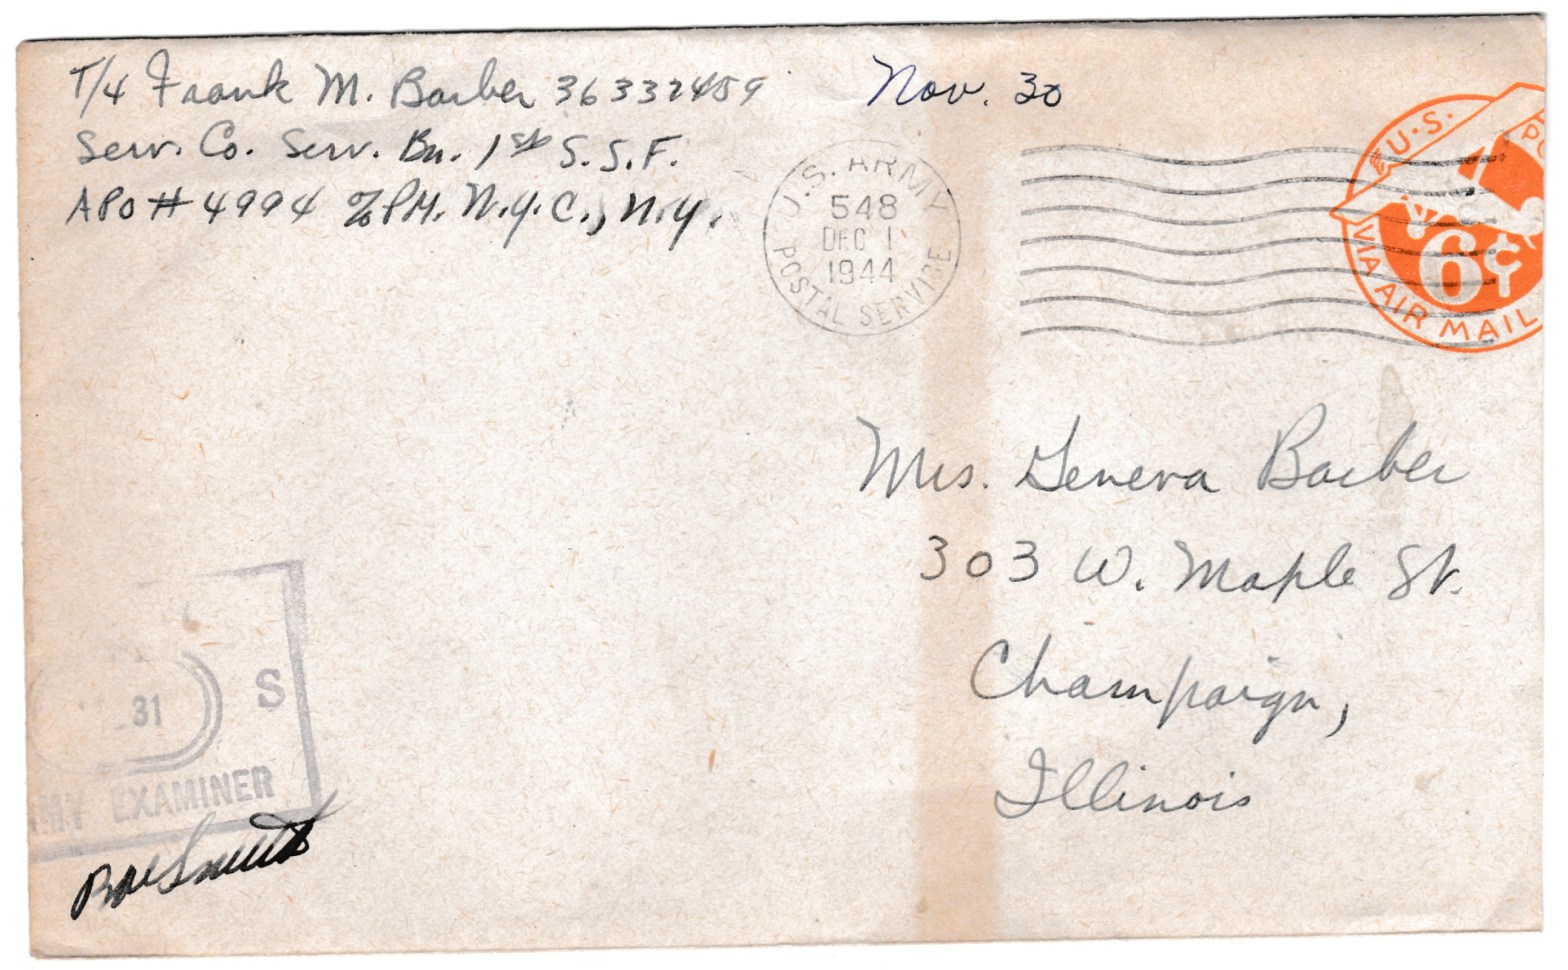 T/4 Frank M. Barber 36337459
Nov. 30
Serv. Co. Serv. Bn. 1st S.S.F.
APO # 4994 % P.M. N.Y.C., N.Y.
U.S. ARMY
548
DEC 1
1944
POSTAL SERVICE
U.S. PO
6¢
VIA AIR MAIL
Mrs. Geneva Barber
303 W. Maple St.
Champaign,
Illinois
31
S
RMY EXAMINER